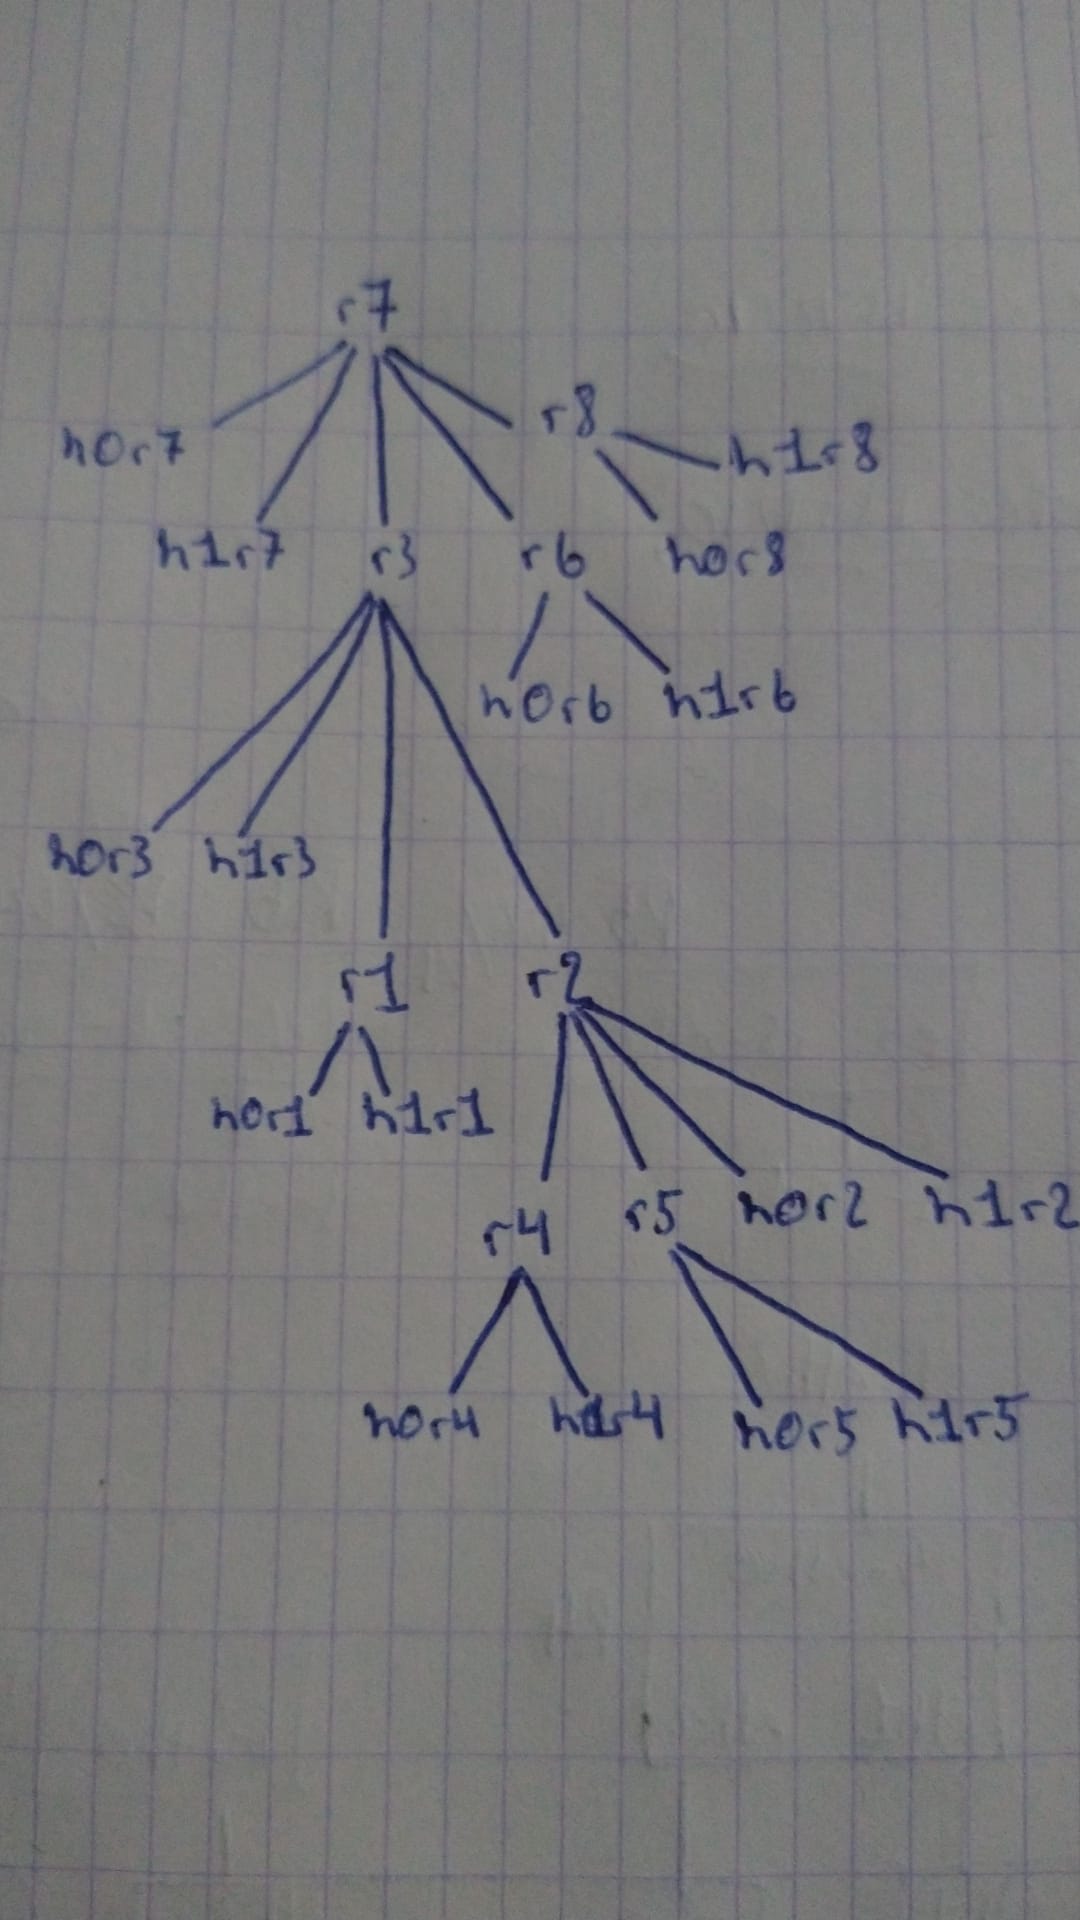 r7
r8
h0r7 h1r8
h1r7 r3 r6 h0r8
h0r6 h1r6
h0r3 h1r3
r1 r2
h0r1 h1r1
r4 r5 h0r2 h1r2
h0r4 h1r4 h0r5 h1r5